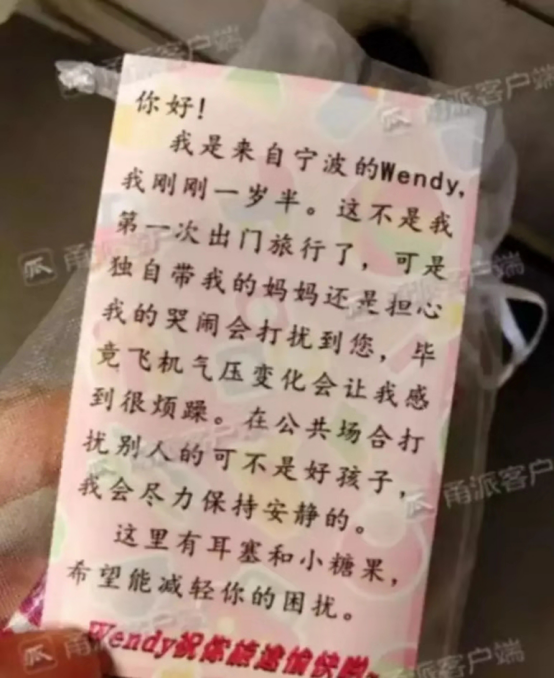 你好!
我是来自宁波的Wendy,
我刚刚一岁半。这不是我
第一次出门旅行了，可是
独自带我的妈妈还是担心
我的哭闹会打扰到您，毕
竟飞机气压变化会让我感
到很烦躁。在公共场合打
扰别人的可不是好孩子，
我会尽力保持安静的。
这里有耳塞和小糖果，
希望能减轻你的困扰。
Wendy祝你旅途愉快哟
甬派客户端
甬派客户端
甬派客户端
甬派客户端
甬派客户端
甬派客户端